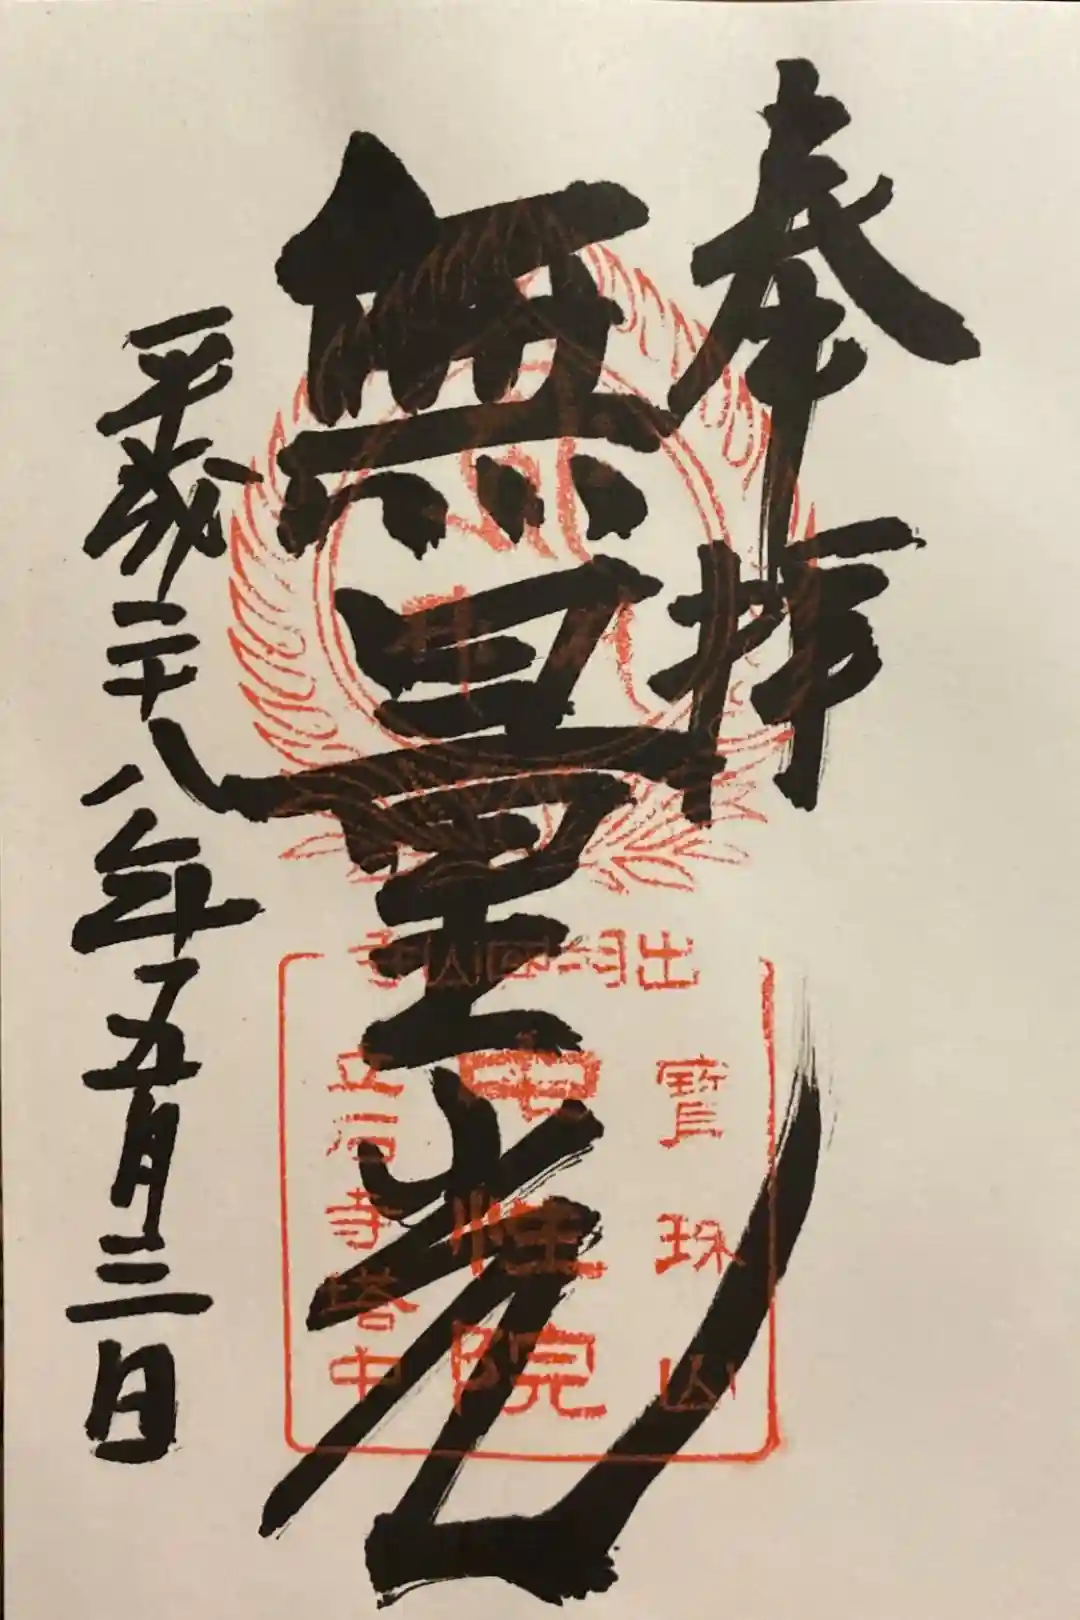 奉拝
無量光
平成二十八年五月三日
出羽国山寺
寳珠山
中性院
立石寺塔中